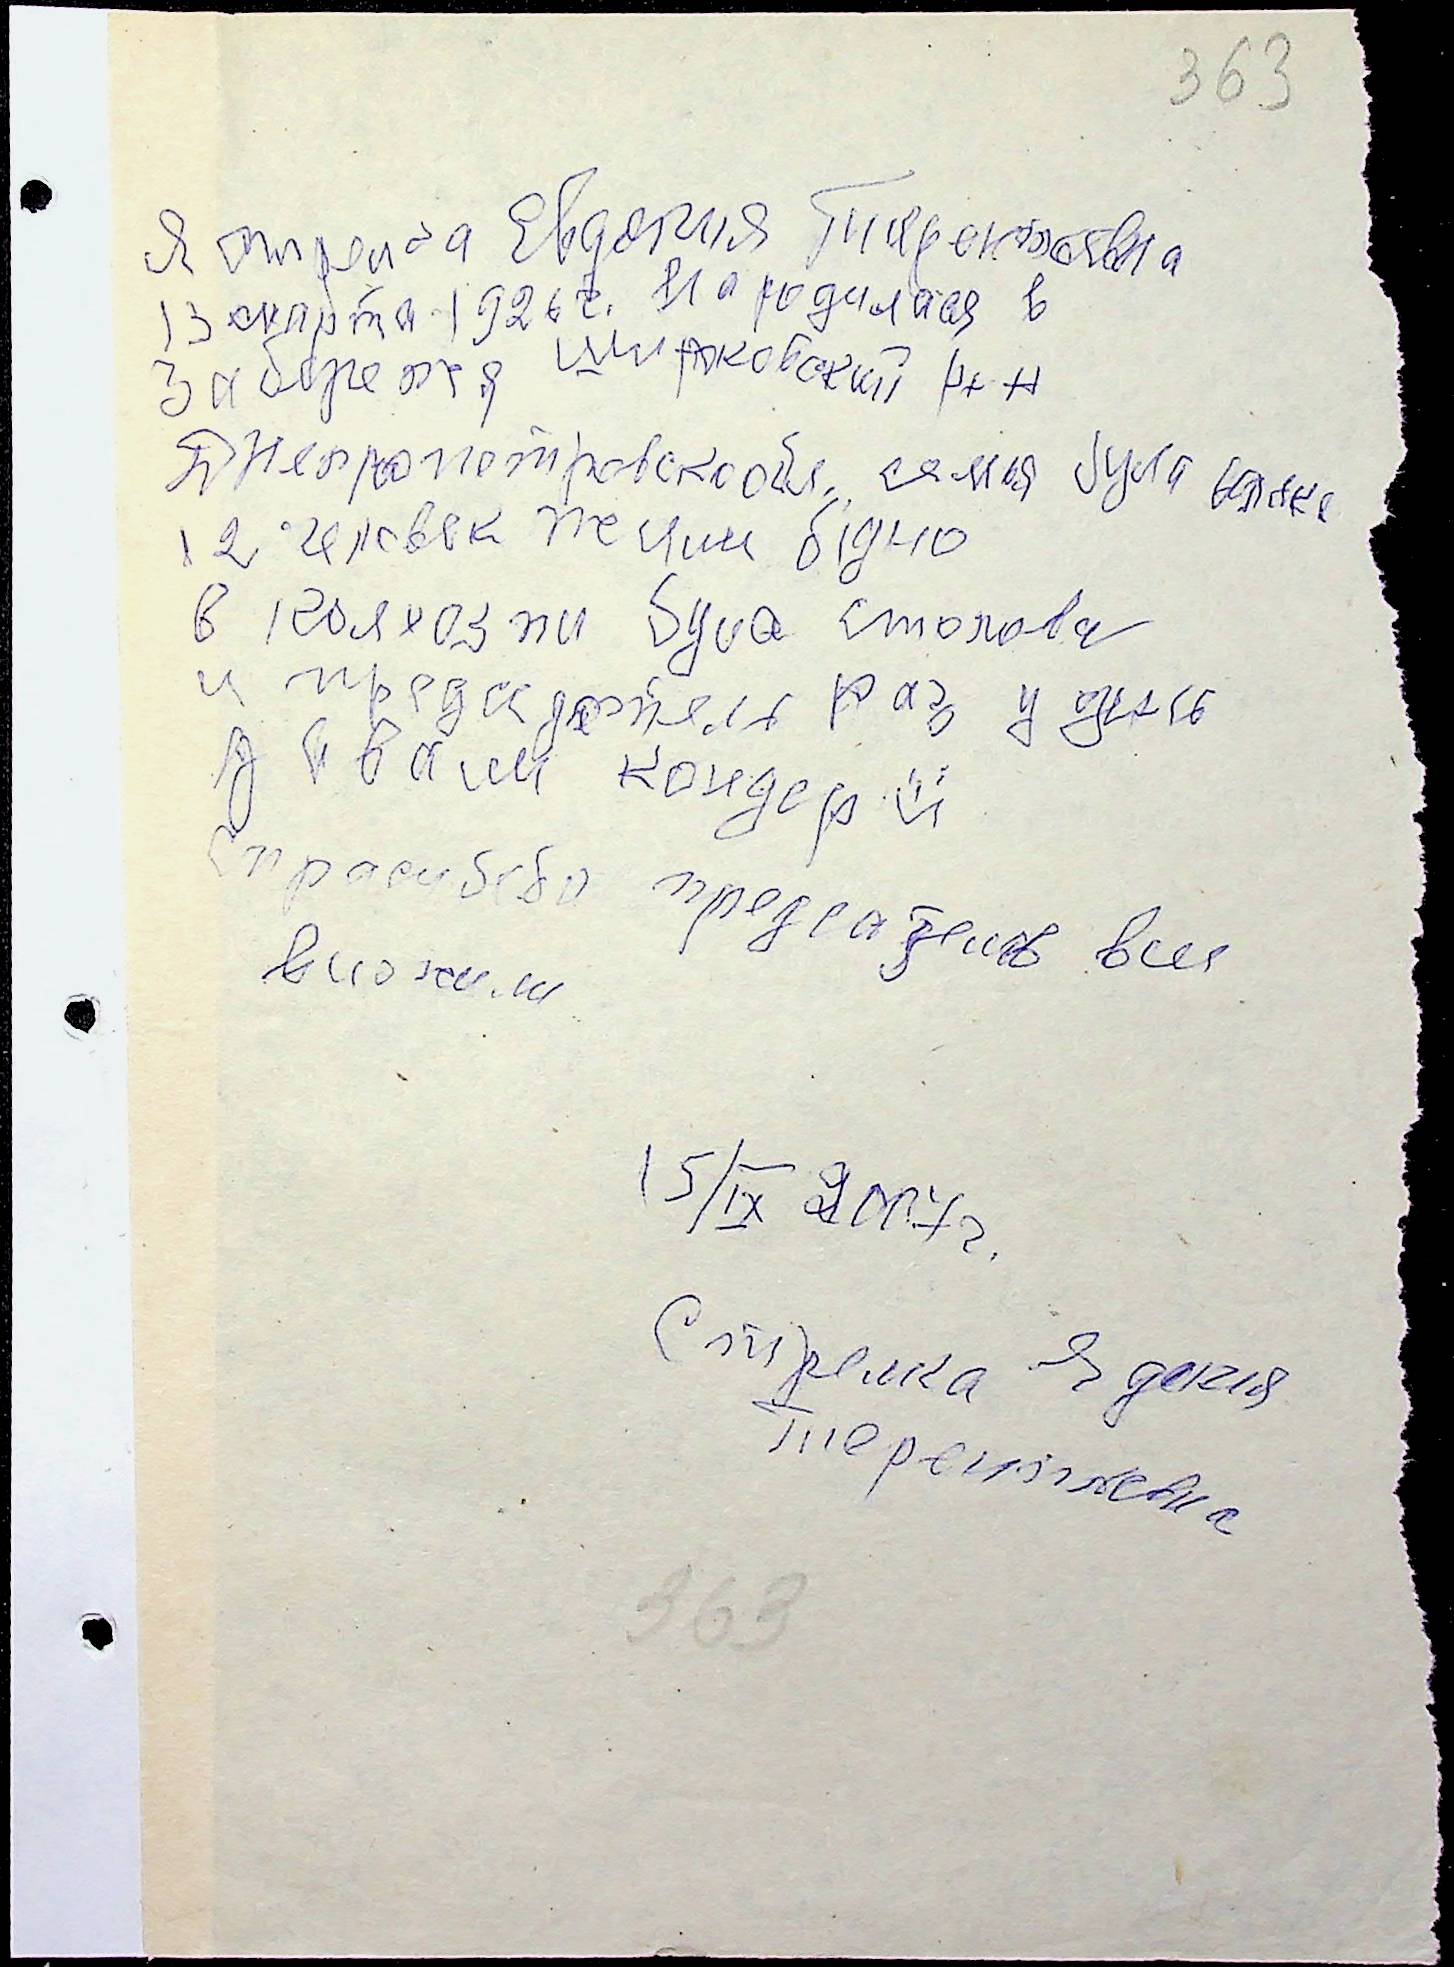 363
Я стрелка Евдокия Терентивна
13 марта 1926 г. Народилася в
Забережя Широковский р-н
Днепропетровской обл. семия була
12 человек жили бідно
в колхозпи була столова
и председатель раз у день
давали кондер й
спрасибево председателю вси
вижили
15/IX 2007 г.
Стрелка Явдокия
Терентивна
363